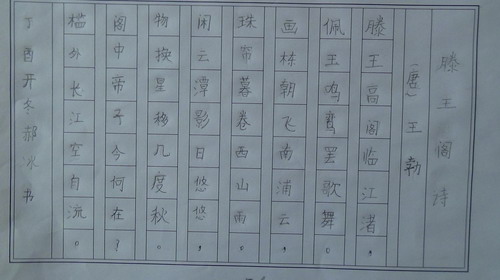 滕王阁诗
(唐)王勃
滕王高阁临江渚,
佩玉鸣鸾罢歌舞。
画栋朝飞南浦云,
珠帘暮卷西山雨。
闲云潭影日悠悠,
物换星移几度秋。
阁中帝子今何在?
槛外长江空自流。
丁酉开冬郝冰书